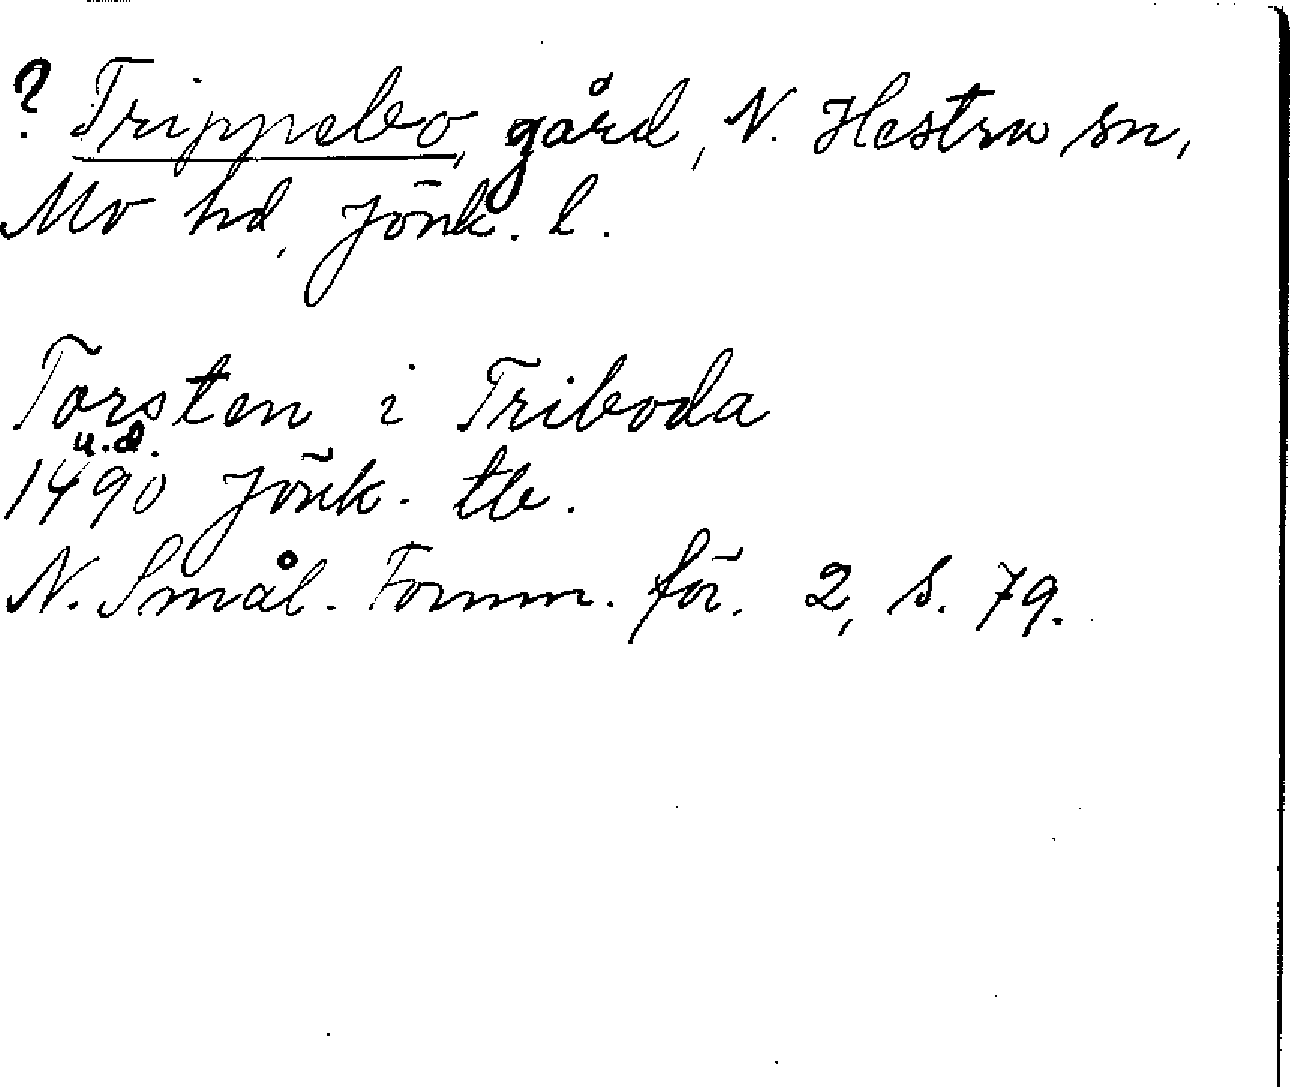 ? Trippebo, gård, N. Hestra sn,
Mo hd, Jönk. l.
Torsten i Triboda
u.d.
1490 Jönk. tb.
N. Smål. Fornm. för. 2, s. 79.